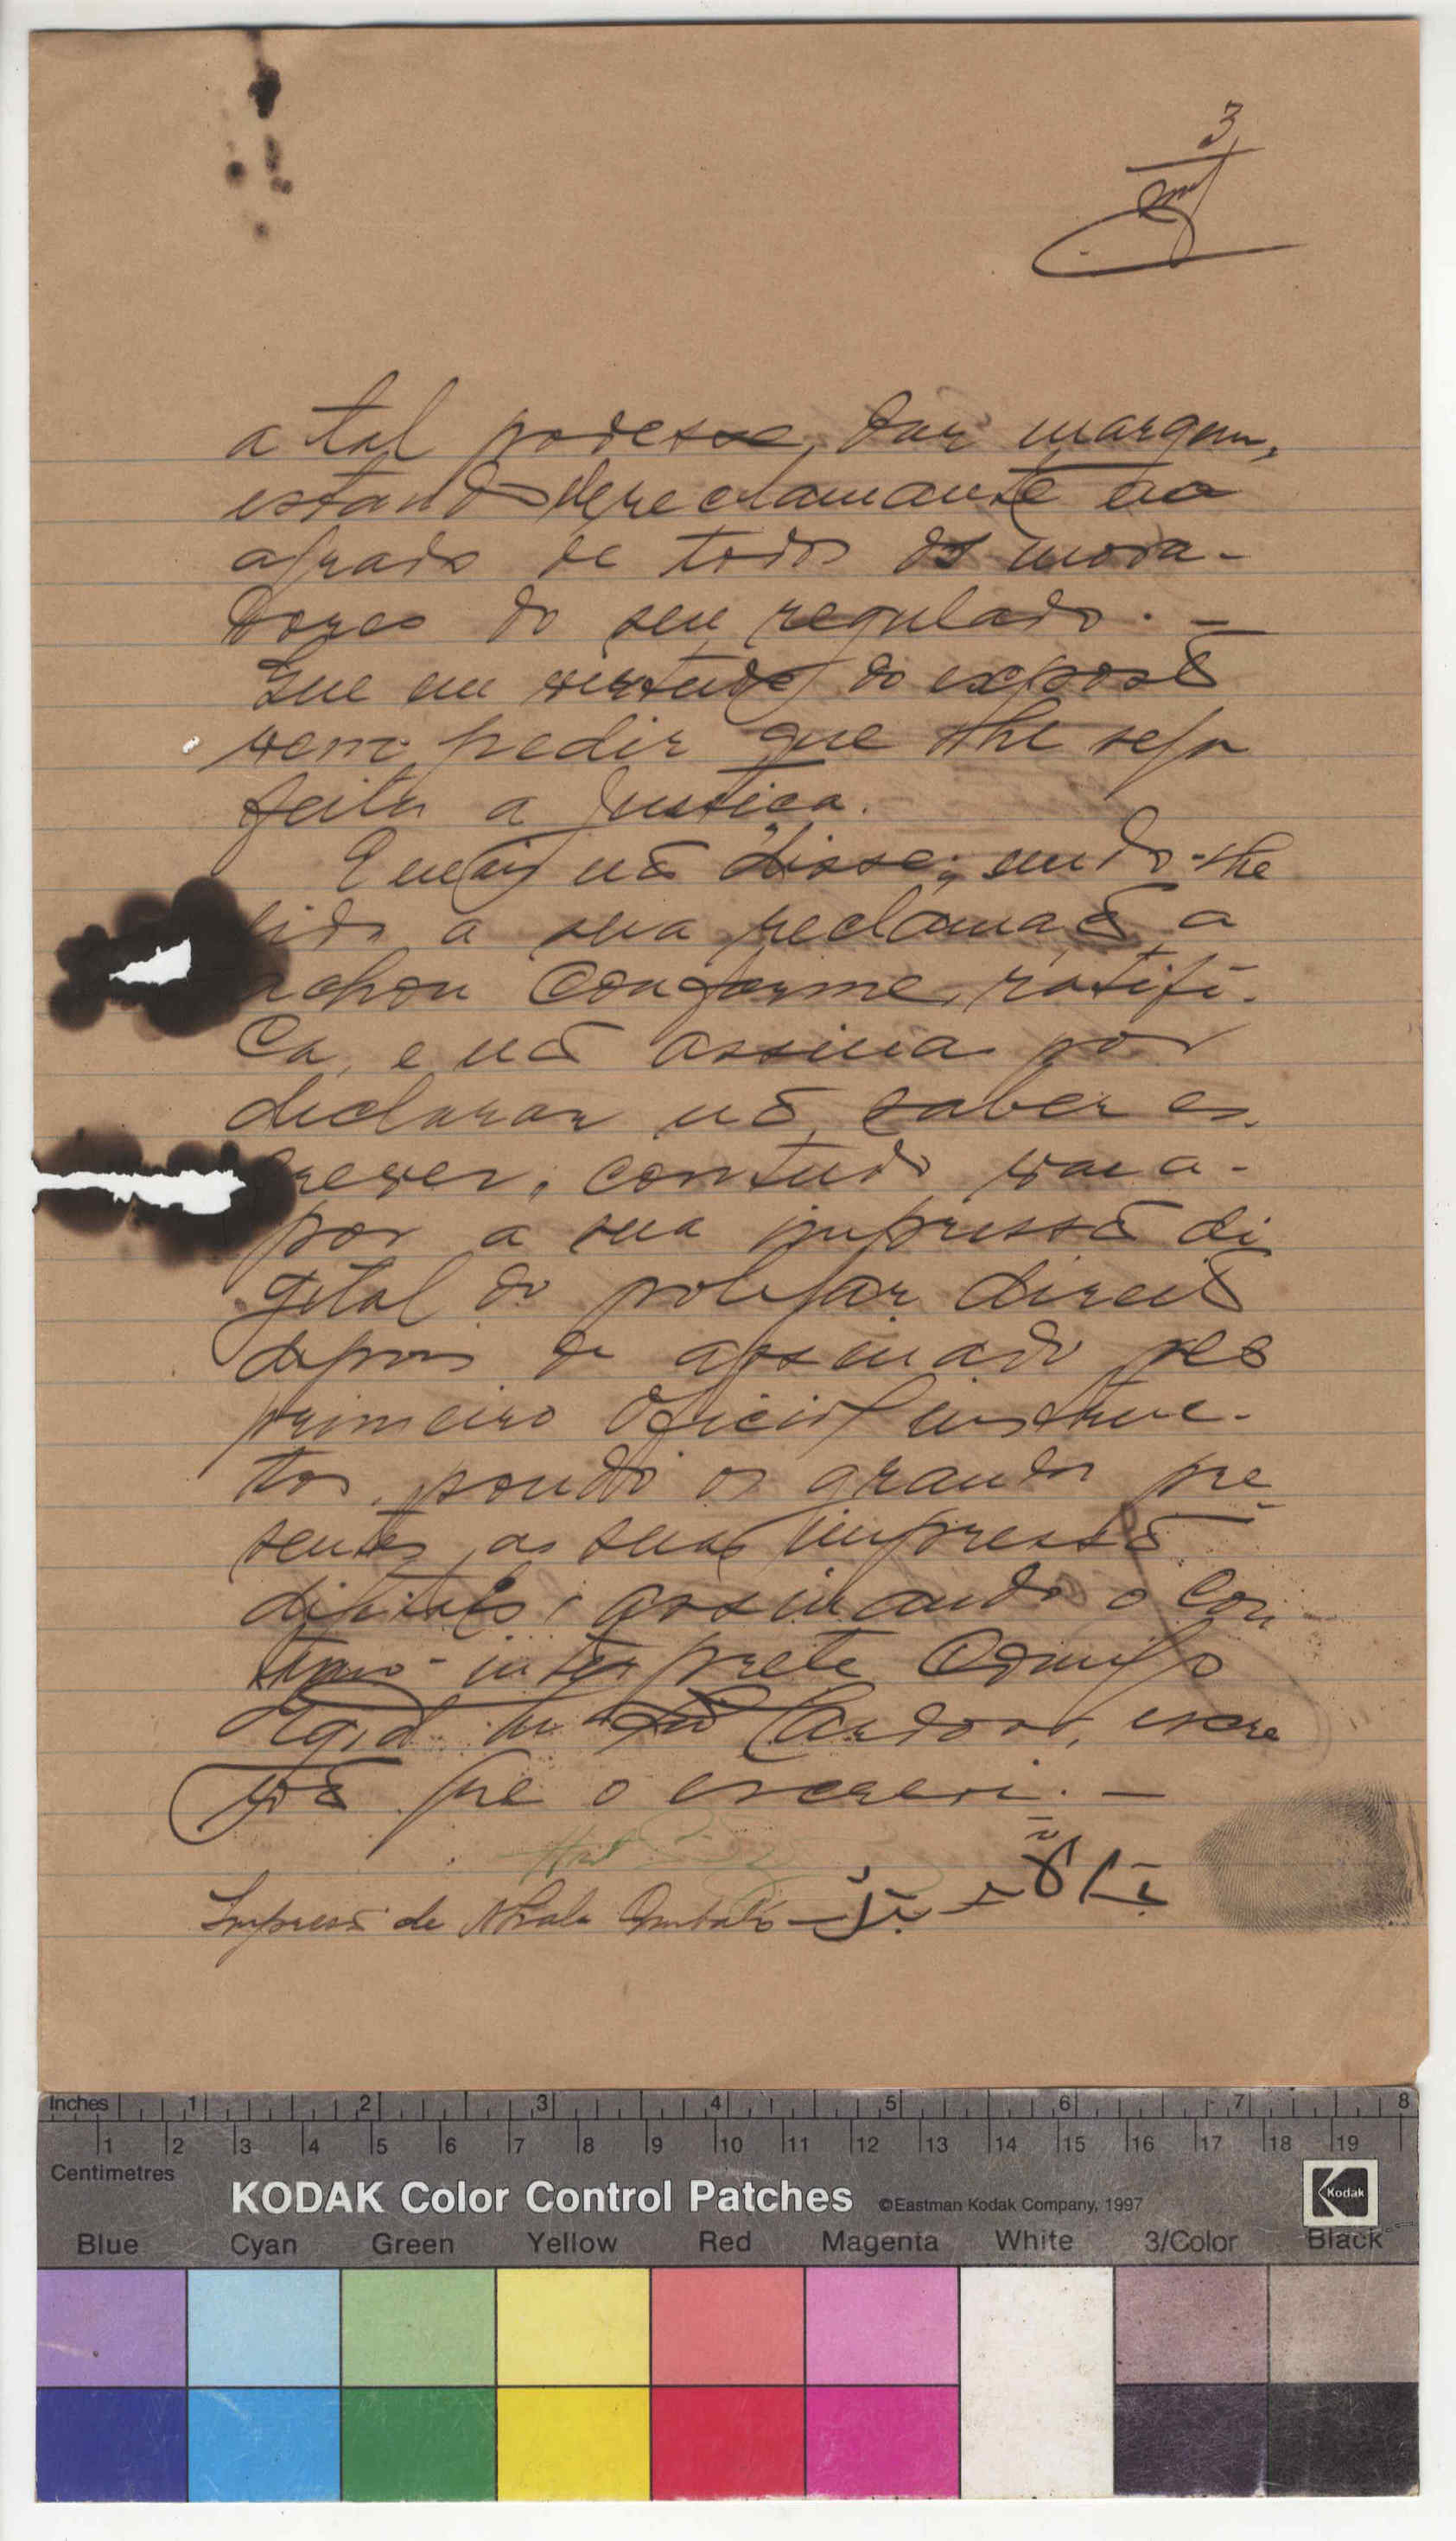 3
a tal podesse dar margem,
estando reclamante ao
agrado de todos os mora-
dores do seu regulado. —
Que em virtude do exposto
vem pedir que lhe seja
feita a justica.
E mais nã disse; sendo-lhe
lida a sua reclamaçã a
achou conforme, ratifi-
ca, e nã assina por
declarar nã saber es-
crever, contudo vai a-
por a sua impressã di
gital do polegar direito
depois de assinado pelo
primeiro oficial instruc-
tor, pondo os grandes pre
sentes as suas impressõ
digitais, assinando o con
tinuo-interprete
Cardoso, escre
vã que o escrevi. —
Impressã de
Inches 1 2 3 4 5 6 7 8
1 2 3 4 5 6 7 8 9 10 11 12 13 14 15 16 17 18 19
Centimetres
KODAK Color Control Patches ©Eastman Kodak Company, 1997 Kodak
Blue Cyan Green Yellow Red Magenta White 3/Color Black